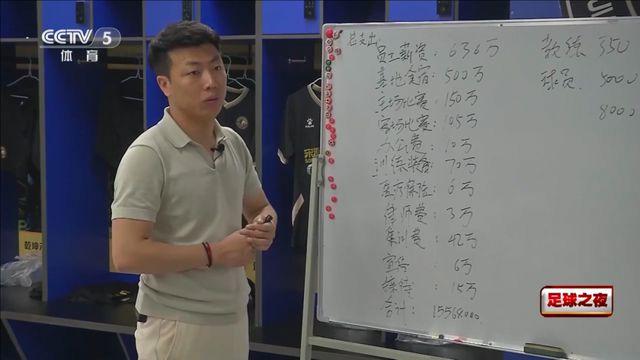 CCTV 5
体育
总支出
员工薪资:636万 教练 350
基地食宿:500万 球员
主场比赛:150万 8000
客场比赛:105万
办公费:10万
训练装备:70万
医疗保险:6万
律师费:3万
集训费:42万
宣传 6万
接待: 15万
合计: 15568000
足球之夜